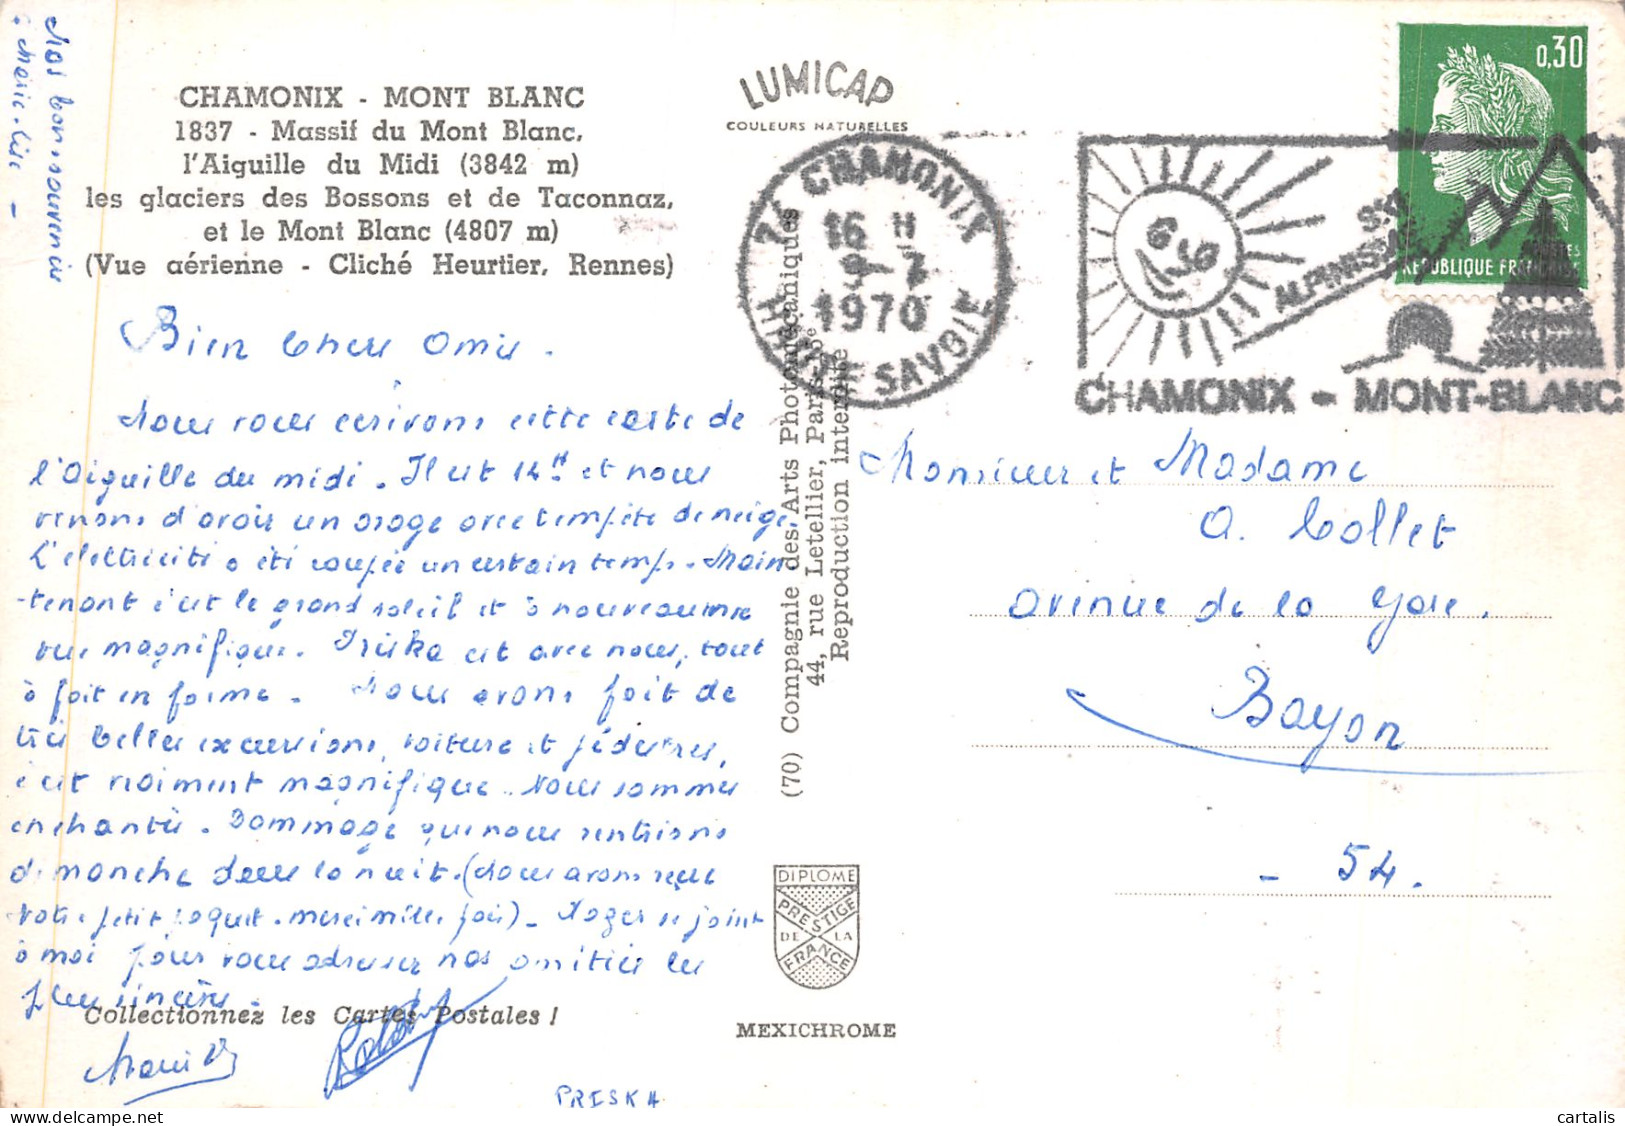 CHAMONIX - MONT BLANC
1837 - Massif du Mont Blanc,
l'Aiguille du Midi (3842 m)
les glaciers des Bossons et de Taconnaz,
et le Mont Blanc (4807 m)
(Vue aérienne - Cliché Heurtier, Rennes)
Nos bons souvenirs
à Marie-Lise -
Bien Chers Amis.
Nous vous écrivons cette carte de
l'Aiguille du midi. Il est 14H et nous
venons d'avoir un orage avec tempête de neige.
L'électricité a été coupée un certain temps. Main
-tenant c'est le grand soleil et à nouveau une
vue magnifique. Priska est avec nous, tout
à fait en forme. Nous avons fait de
très belles excursions, voiture et pédestres,
c'est vraiment magnifique. Nous sommes
enchantés. Dommage que nous rentrions
dimanche dans la nuit. (Nous avons reçu
votre petit paquet. merci mille fois). Roger se joint
à moi pour vous adresser nos amitiés les
plus sincères.
Collectionnez les Cartes Postales !
PRISKA
LUMICAP
COULEURS NATURELLES
74 CHAMONIX
16 H
9-7
1970
HAUTE SAVOIE
SKI
ALPINISME
CHAMONIX - MONT-BLANC
0,30
RÉPUBLIQUE FRANÇAISE
(70) Compagnie des Arts Photomécaniques
44, rue Letellier, Paris-15e
Reproduction interdite
Monsieur et Madame
A. Collet
avenue de la Gare.
Bayon
- 54.
DIPLOME
PRESTIGE
DE LA
FRANCE
MEXICHROME
cartalis